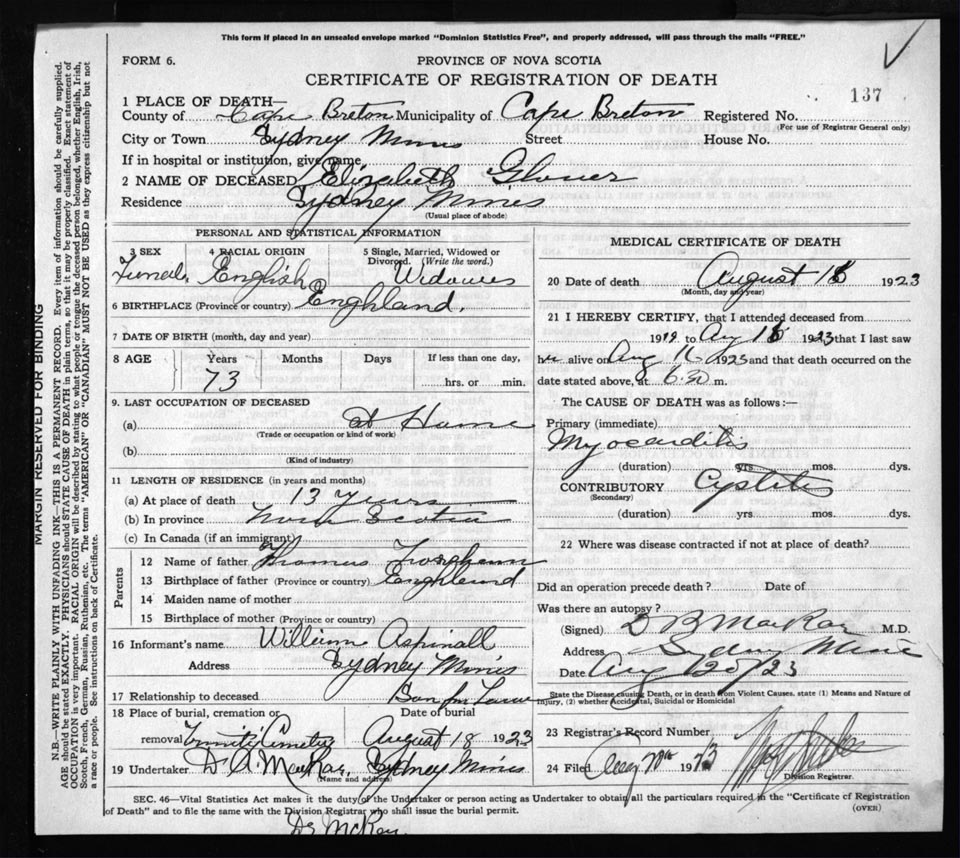 This form if placed in an unsealed envelope marked "Dominion Statistics Free", and properly addressed, will pass through the mails "FREE."
FORM 6.
PROVINCE OF NOVA SCOTIA
CERTIFICATE OF REGISTRATION OF DEATH
137
1 PLACE OF DEATH—
County of Cape Breton Municipality of Cape Breton Registered No.
(For use of Registrar General only)
City or Town Sydney Mines Street House No.
If in hospital or institution, give name
2 NAME OF DECEASED Elizabeth Glover
Residence Sydney Mines
(Usual place of abode)
PERSONAL AND STATISTICAL INFORMATION
3 SEX 4 RACIAL ORIGIN 5 Single, Married, Widowed or Divorced. (Write the word.)
English
6 BIRTHPLACE (Province or country) England.
7 DATE OF BIRTH (month, day and year)
8 AGE Years Months Days If less than one day,
73 hrs. or min.
9. LAST OCCUPATION OF DECEASED
(a) at Home
(Trade or occupation or kind of work)
(b)
(Kind of industry)
11 LENGTH OF RESIDENCE (in years and months)
(a) At place of death 13 years
(b) In province Nova Scotia
(c) In Canada (if an immigrant)
Parents
12 Name of father Thomas
13 Birthplace of father (Province or country) England
14 Maiden name of mother
15 Birthplace of mother (Province or country)
16 Informant's name William Aspinall
Address Sydney Mines
17 Relationship to deceased Son in Law
18 Place of burial, cremation or removal Date of burial
Trinity Cemetery August 18 1923
19 Undertaker D. A. MacKay, Sydney Mines
(Name and address)
MEDICAL CERTIFICATE OF DEATH
20 Date of death August 16 1923
(Month, day and year)
21 I HEREBY CERTIFY, that I attended deceased from
1919 to Aug 16 1923 that I last saw
her alive on Aug 16 1923 and that death occurred on the
date stated above, at 6.30 m.
The CAUSE OF DEATH was as follows:—
Primary (immediate)
Myocarditis
(duration) yrs. mos. dys.
CONTRIBUTORY Cystitis
(Secondary)
(duration) yrs. mos. dys.
22 Where was disease contracted if not at place of death?
Did an operation precede death? Date of
Was there an autopsy?
(Signed) D B MacKay M.D.
Address Sydney Mines
Date Aug 20/23
State the Disease causing Death, or in death from Violent Causes, state (1) Means and Nature of Injury, (2) whether Accidental, Suicidal or Homicidal
23 Registrar's Record Number
24 Filed Aug 19
Division Registrar.
SEC. 46—Vital Statistics Act makes it the duty of the Undertaker or person acting as Undertaker to obtain all the particulars required in the "Certificate of Registration
of Death" and to file the same with the Division Registrar who shall issue the burial permit.
(OVER)
Dr McKay.
MARGIN RESERVED FOR BINDING
N.B.—WRITE PLAINLY WITH UNFADING INK—THIS IS A PERMANENT RECORD. Every item of information should be carefully supplied.
AGE should be stated EXACTLY. PHYSICIANS should STATE CAUSE OF DEATH in plain terms, so that it may be properly classified. Exact statement of
OCCUPATION is very important. RACIAL ORIGIN will be described by stating to what people or tongue the deceased person belonged, whether English, Irish,
Scotch, French, German, Russian, Ruthenian, etc. The terms "AMERICAN" OR "CANADIAN" MUST NOT BE USED as they express citizenship but not
a race or people. See instructions on back of Certificate.